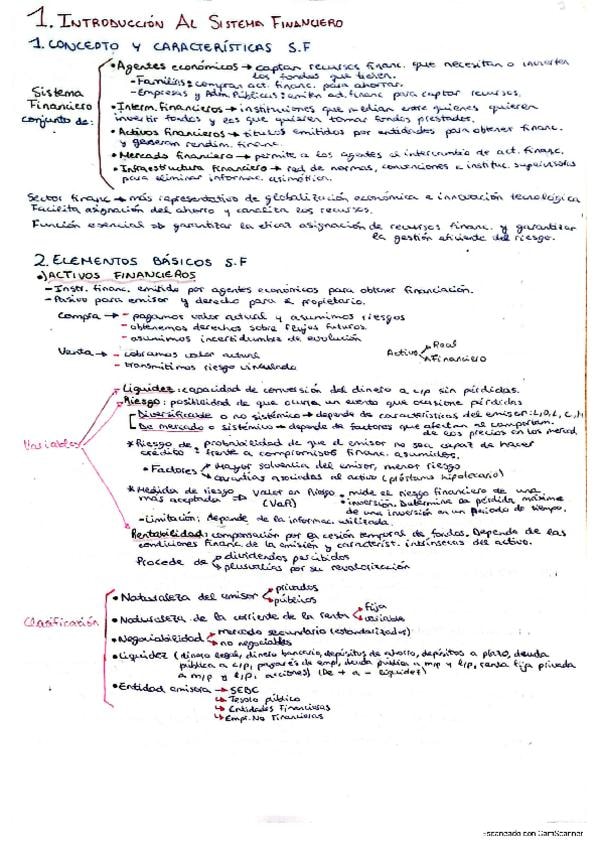 1. INTRODUCCIÓN AL SISTEMA FINANCIERO
1. CONCEPTO Y CARACTERÍSTICAS S.F
Sistema Financiero conjunto de:
• Agentes económicos → captan recursos financ. que necesitan o invierten
los fondos que tienen.
- Familias: compran act. financ. para ahorrar.
- Empresas y Adm. Públicas: emiten act. financ. para captar recursos.
• Interm. financieros → instituciones que median entre quienes quieren
invertir fondos y los que quieren tomar fondos prestados.
• Activos financieros → títulos emitidos por entidades para obtener financ.
y generan rendim. financ.
• Mercado financiero → permite a los agentes el intercambio de act. financ.
• Infraestructura financiero → red de normas, convenciones e instituc. supervisoras
para eliminar informac. asimétrica.
Sector financ → más representativo de globalización económica e innovación tecnológica
Facilita asignación del ahorro y canaliza los recursos.
Función esencial → garantizar la eficaz asignación de recursos financ. y garantizar
la gestión eficiente del riesgo.
2. ELEMENTOS BÁSICOS S.F
a) ACTIVOS FINANCIEROS
- Instr. financ. emitido por agentes económicos para obtener financiación.
- Pasivo para emisor y derecho para el propietario.
Compra → - pagamos valor actual y asumimos riesgos
- obtenemos derechos sobre flujos futuros
- asumimos incertidumbre de evolución
Venta → - cobramos valor actual
- transmitimos riesgo vinculado
Activo
Real
Financiero
Variables
Liquidez: capacidad de conversión del dinero a c/p sin pérdidas.
Riesgo: posibilidad de que ocurra un evento que ocasione pérdidas
Diversificable o no sistémico → depende de características del emisor:
De mercado o sistémico → depende de factores que afectan al comportam.
de los precios en los mercad.
* Riesgo de crédito: probabilidad de que el emisor no sea capaz de hacer
frente a compromisos financ. asumidos.
• Factores
Mayor solvencia del emisor, menor riesgo
Garantías asociadas al activo (préstamo hipotecario)
* Medida de riesgo más aceptada → Valor en Riesgo (VaR)
• mide el riesgo financiero de una
inversión. Determina la pérdida máxima
de una inversión en un período de tiempo.
- Limitación: depende de la informac. utilizada.
Rentabilidad: compensación por la cesión temporal de fondos. Depende de las
condiciones financ. de la emisión y característ. intrínsecas del activo.
Procede de
dividendos percibidos
plusvalías por su revalorización
Clasificación
• Naturaleza del emisor
privados
públicos
• Naturaleza de la corriente de la renta
fija
variable
• Negociabilidad
mercado secundario (estandarizados)
no negociables
• Liquidez (dinero legal, dinero bancario, depósitos de ahorro, depósitos a plazo, deuda
pública a c/p, pagarés de emp, deuda pública a m/p y l/p, renta fija privada
a m/p y l/p, acciones) (De + a - líquidez)
• Entidad emisora → SEBC
→ Tesoro público
→ Entidades Financieras
→ Empr. No Financieras
Escaneado con CamScanner